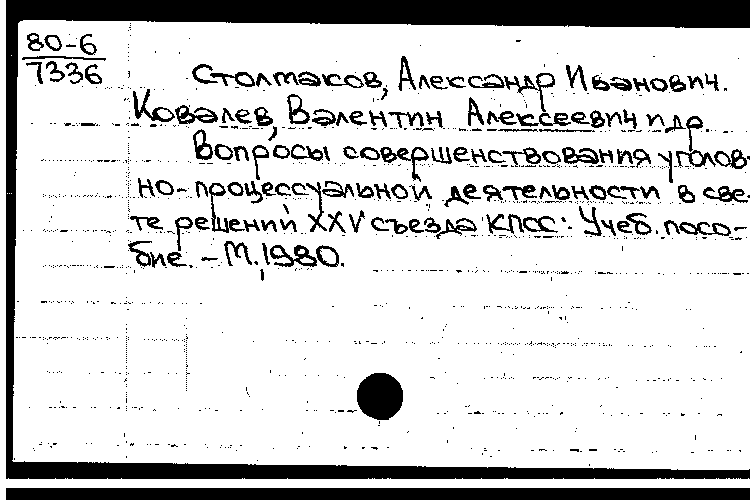 80-6
7336
Столмаков, Александр Иванович.
Ковалев, Валентин Алексеевич и др.
Вопросы совершенствования уголов-
но-процессуальной деятельности в све-
те решений XXV съезда КПСС: Учеб. посо-
бие. - М., 1980.